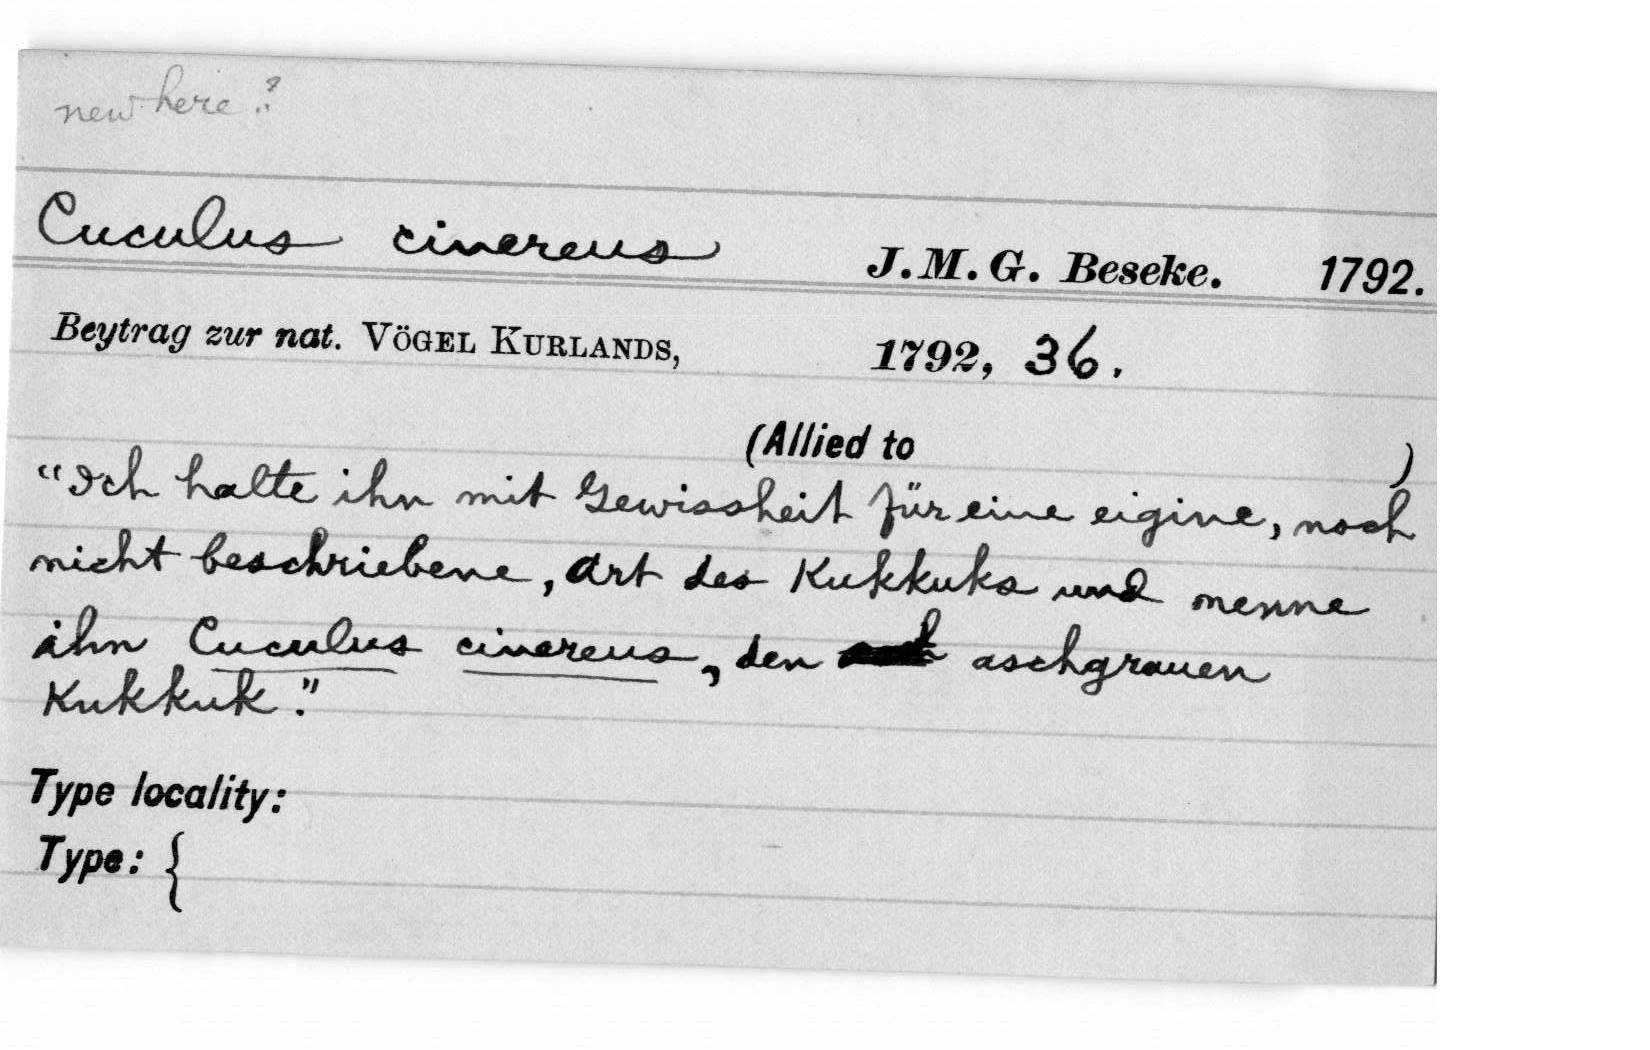 new here?
Cuculus cinereus J. M. G. Beseke. 1792.
Beytrag zur nat. VÖGEL KURLANDS, 1792, 36.
(Allied to )
"Ich halte ihn mit Gewissheit für eine eigine, noch
nicht beschriebene, Art des Kukkuks und nenne
ihn Cuculus cinereus, den aschgrauen
Kukkuk."
Type locality:
Type: {